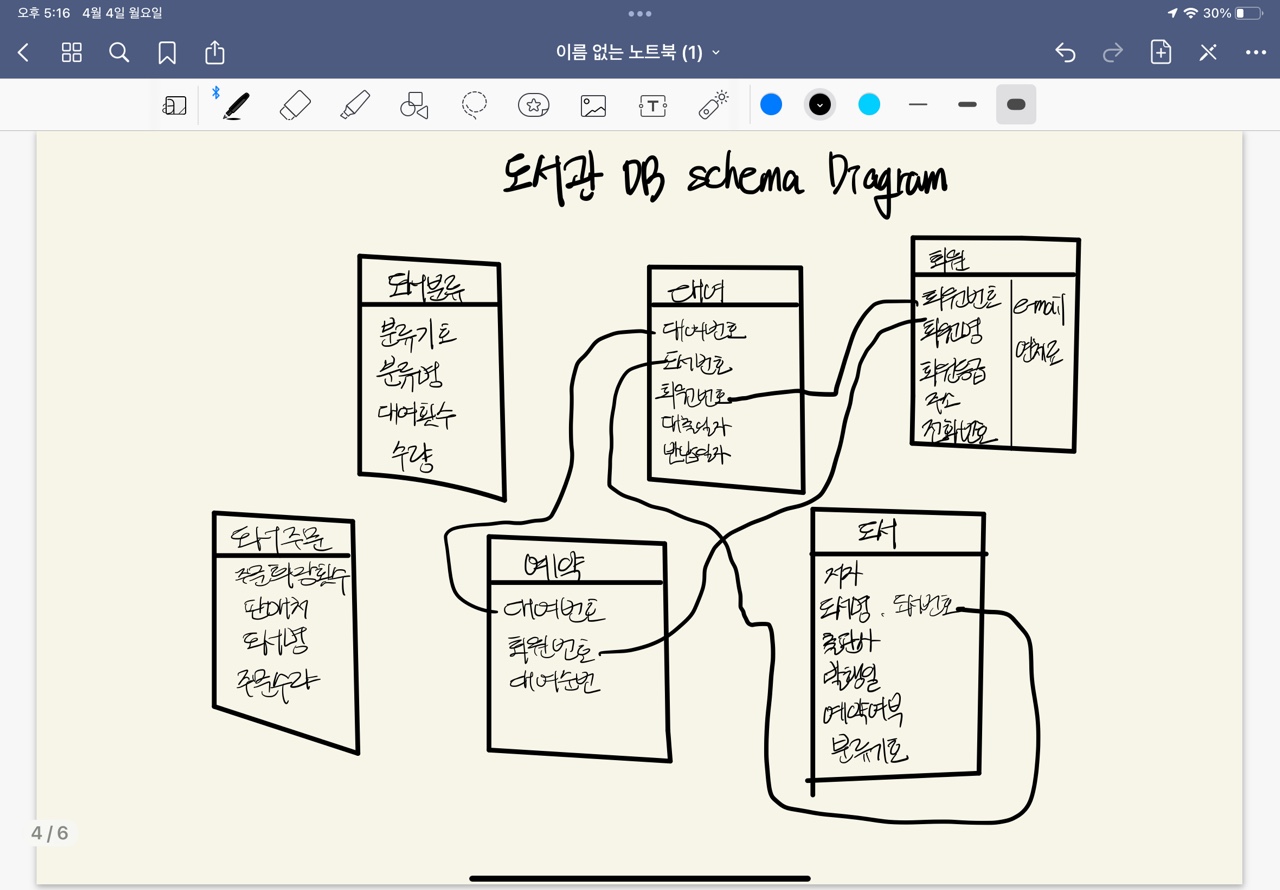 오후 5:16 4월 4일 월요일
30%
이름 없는 노트북 (1)
도서관 DB schema Diagram
도서분류
분류기호
분류명
대여횟수
수량
대여
대여번호
도서번호
회원번호
대출일자
반납일자
회원
회원번호
회원명
회원등급
주소
전화번호
e-mail
연체료
도서주문
판매처
도서명
주문수량
예약
대여번호
회원번호
대여순번
도서
저자
도서명. 도서번호
출판사
발행일
예약여부
분류기호
4 / 6